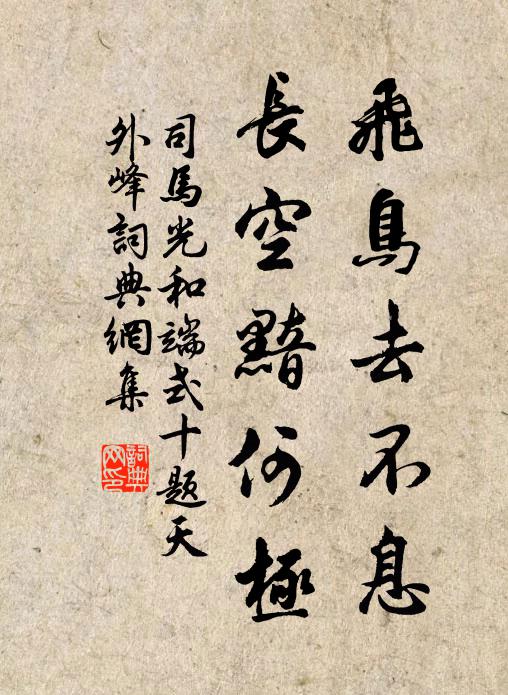 飛鳥去不息
長空黯何極
司馬光和端式十题天
外峰詞典網集
詞典
网印